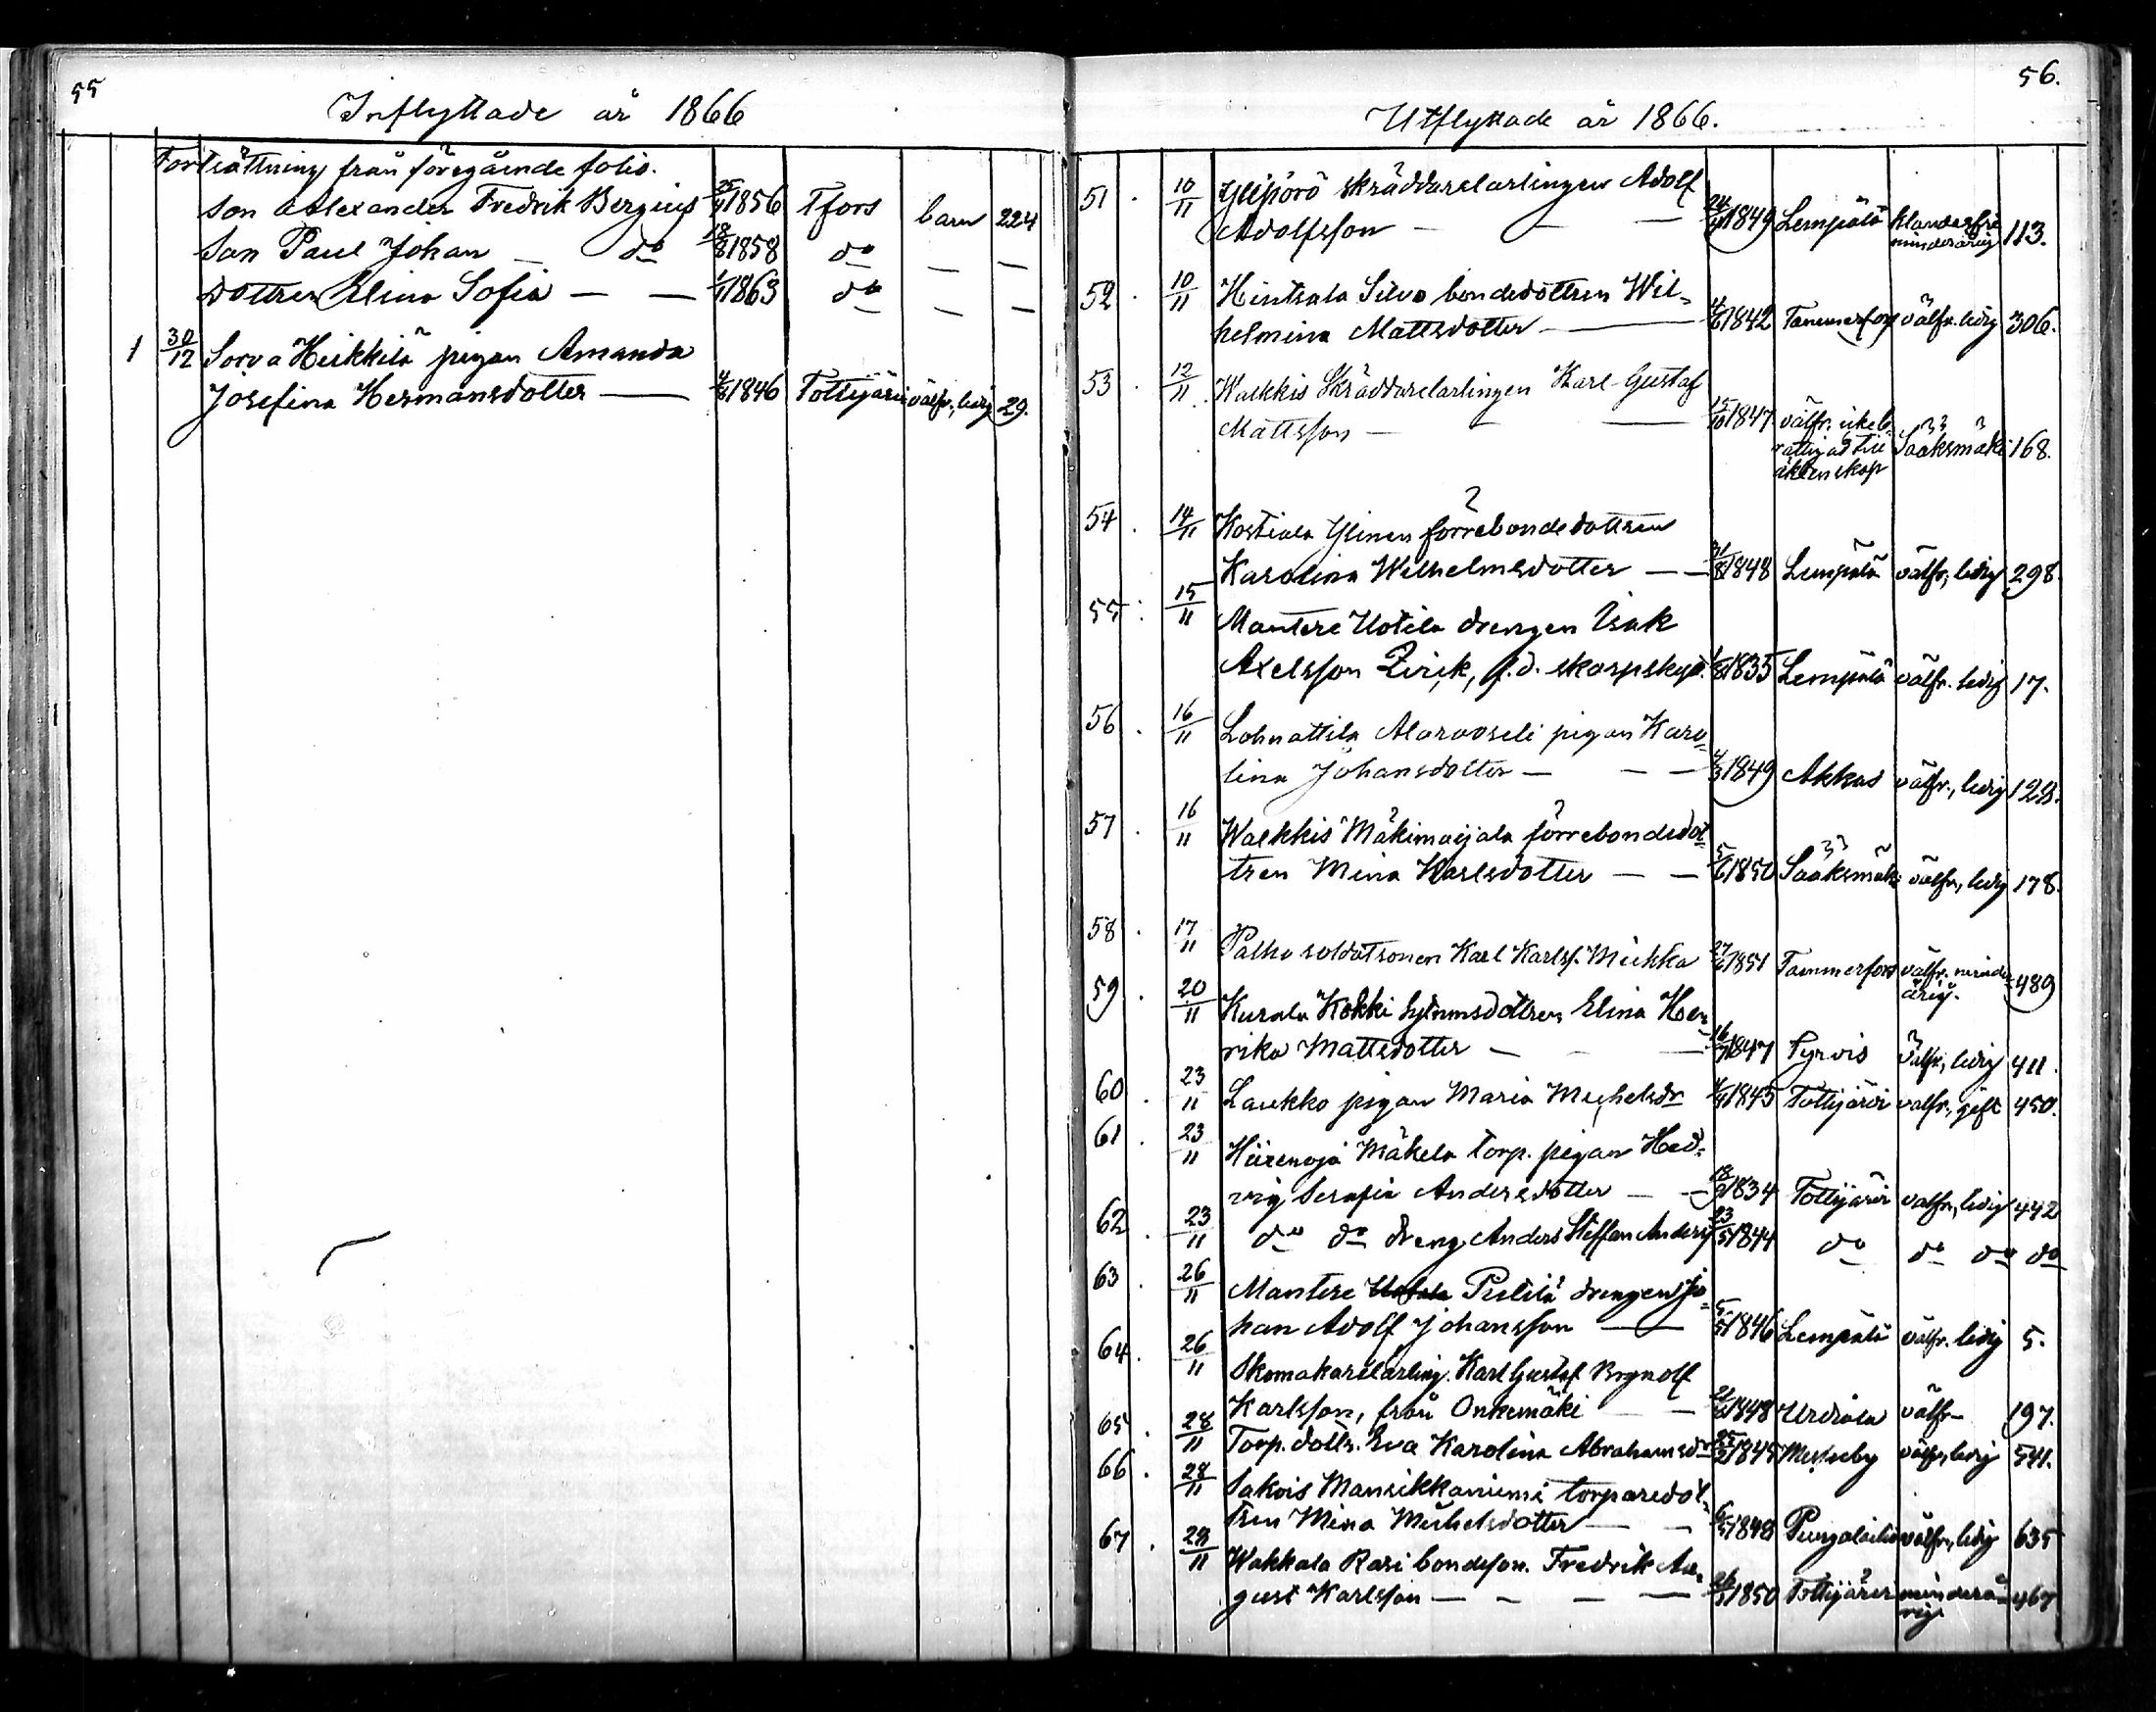 55
Inflyttade år 1866
Fortsättning från föregående folio.
son Alexander Fredrik Bergius 1856 Tfors barn 224
Son Paul Johan — do 18/8 1858 do — —
dottren Elina Sofia — — 1863 do — —
1 30/12 Sorva Heikkilä pigan Amanda
Josefina Hermansdotter — 1846 Tottijärvi välfr., ledig 29.
56.
Utflyttade år 1866.
51. 10/11 Ylipörö skräddarelärlingen Adolf
Adolfsson — — — 1849 Lempälä klanderfri minderårig 113.
52. 10/11 Hintsala Silvo bondedottren Wil-
helmina Mattsdotter — 1842 Tammerfors välfr. ledig 306.
53. 12/11 Walkkis Skräddarelärlingen Karl Gustaf
Mattsson — — — 15/10 1847 välfr. icke be-
rättigad till Sääksmäki 168.
äktenskap
54. 14/11 Kostiala Ylinen förrebondedottren
Karolina Wilhelmsdotter — — 31/8 1848 Lempälä välfr., ledig 298.
55. 15/11 Mantere Uotila drengen Isak
Axelsson Zirik, f.d. skarpskyt. 1/8 1835 Lempälä välfr. ledig 17.
56. 16/11 Lohnattila Alarooseli pigan Karo-
lina Johansdotter — — — 4/3 1849 Akkas välfr., ledig 128.
57. 16/11 Walkkis Mäkimaijala förrebondedot-
tren Mina Karlsdotter — — 5/6 1850 Sääksmäki välfr., ledig 178.
58. 17/11 Palho soldatsonen Karl Karlss. Miekka 27/6 1851 Tammerfors välfr. minder-
årig. 489
59. 20/11 Kurala Kokki hylnmsdottren Elina Hen-
rika Mattsdotter — — — 1847 Tyrvis välfr., ledig 411.
60. 23/11 Laukko pigan Maria Michelsdr 1845 Tottijärvi välfr., gift 450.
61. 23/11 Hiirenoja Mäkelä torp. pigan Hed-
vig Serafia Andersdotter — — 18/9 1834 Tottijärvi välfr., ledig 442
62. 23/11 do do dreng. Anders Steffan Anderss. 23/5 1844 do do do do
63. 26/11 Mantere Uotila Pietilä drengen Jo-
han Adolf Johansson — 5/5 1846 Lempälä välfr. ledig 5.
64. 26/11 Skomakarelärling. Karl Gustaf Rognolf
Karlsson, från Onkemäki — — 1848 Urdiala välfr — 197.
65. 28/11 Torp. dottr. Eva Karolina Abrahamsdr 25/2 1845 Messuby välfr., ledig 541.
66. 28/11 Sakois Mansikkaniemi torparedot-
tren Mina Michelsdotter — — 1848 Pungalaitio välfr., ledig 635
67. 29/11 Wakkala Rasi bondeson. Fredrik Au-
gust Karlsson — — — — 1850 Tottijärvi minderå-
rig. 467